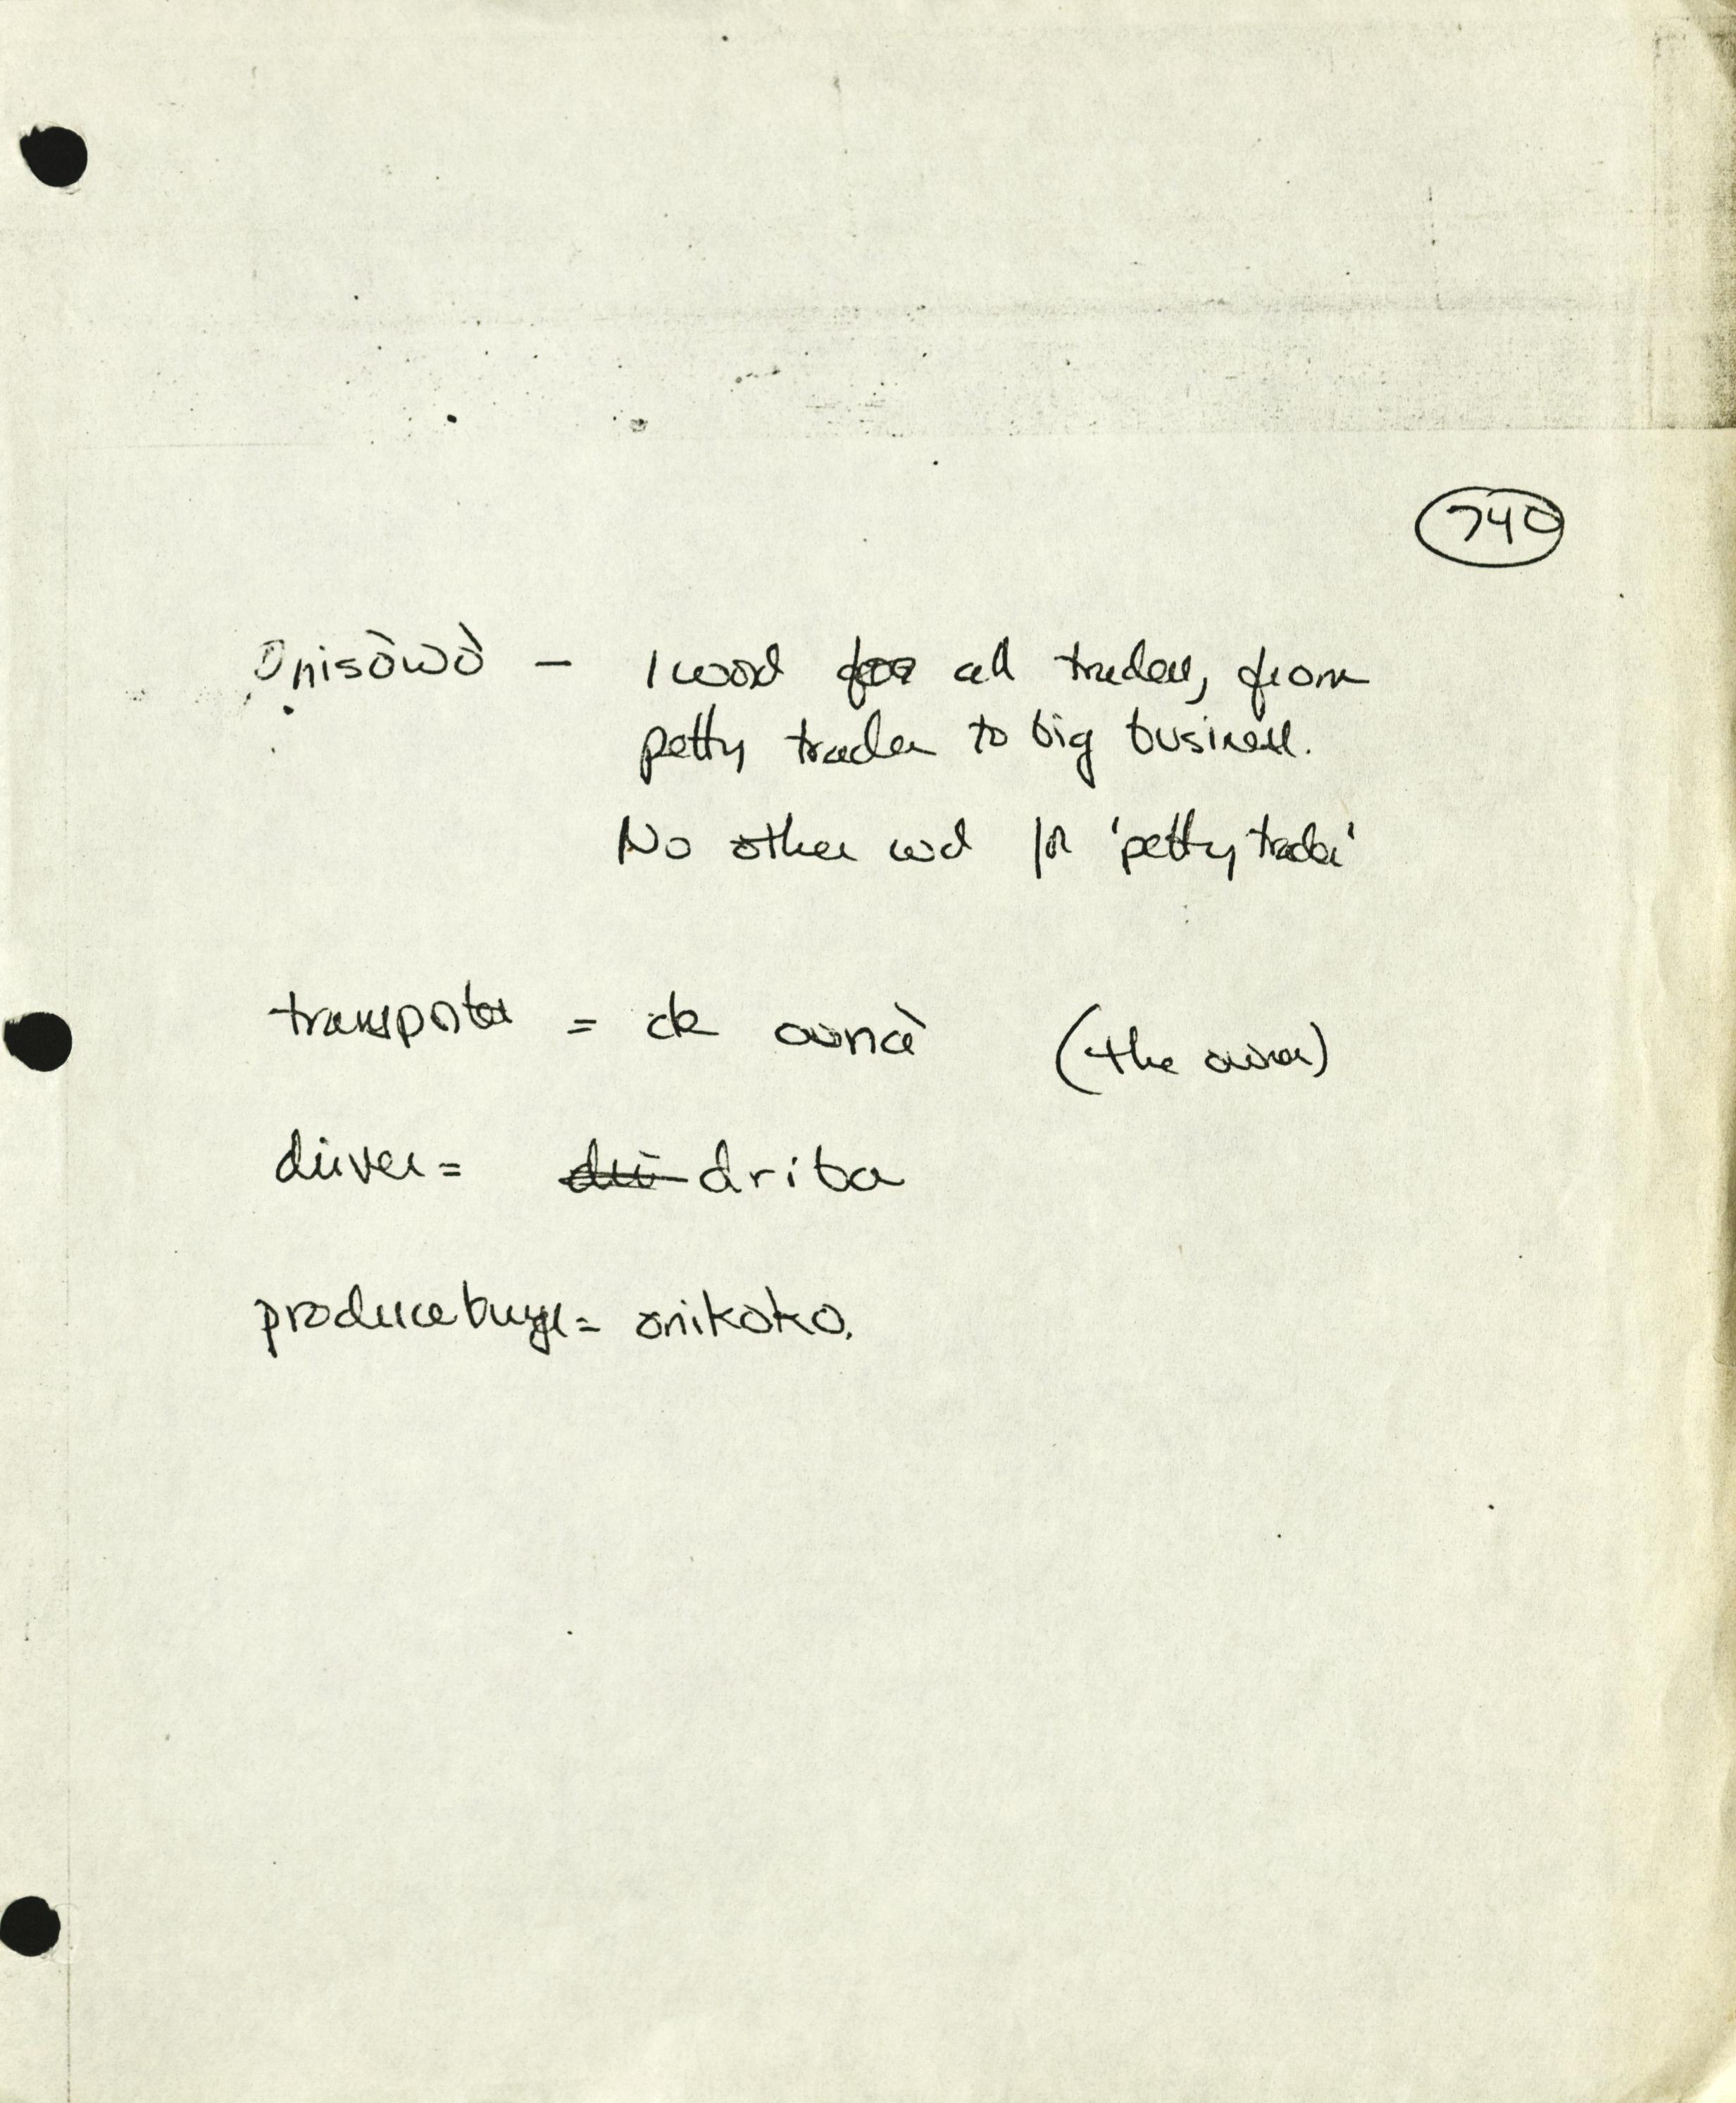 740
Onisòwò – 1 word for all traders, from
petty trader to big business.
No other wd for 'petty trader'
transporter = de ownà (the owner)
driver = dri driba
producebuyer = onikoko.